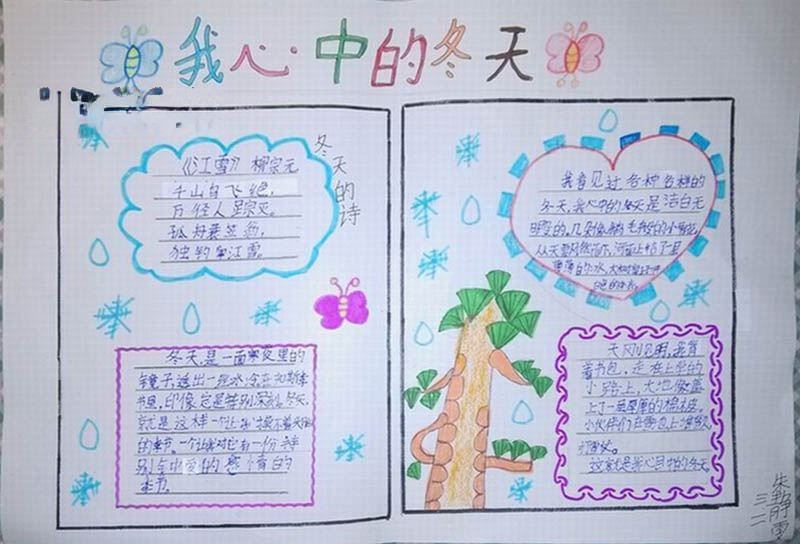 我心中的冬天
冬天的诗
《江雪》 柳宗元
千山鸟飞绝,
万径人踪灭。
孤舟蓑笠翁,
独钓寒江雪。
冬天是一面寒夜里的
镜子,透出一程
书里,印像总是特别深刻。冬天,
就是这样一个让
的季节。一个让我对它有一份特
别的感情的
季节。
我看见过各种各样的
冬天,我心中的冬天是洁白无
瑕的。几朵像鹅毛般的小雪花,
从天
薄薄的冰,
天刚亮,我背
着书包,走在上学的
小路上,大地像盖
上了一层厚厚的棉被,
小伙伴们在雪地上堆雪人
打雪仗。
这就是我心目中的冬天
三二
朱静雯